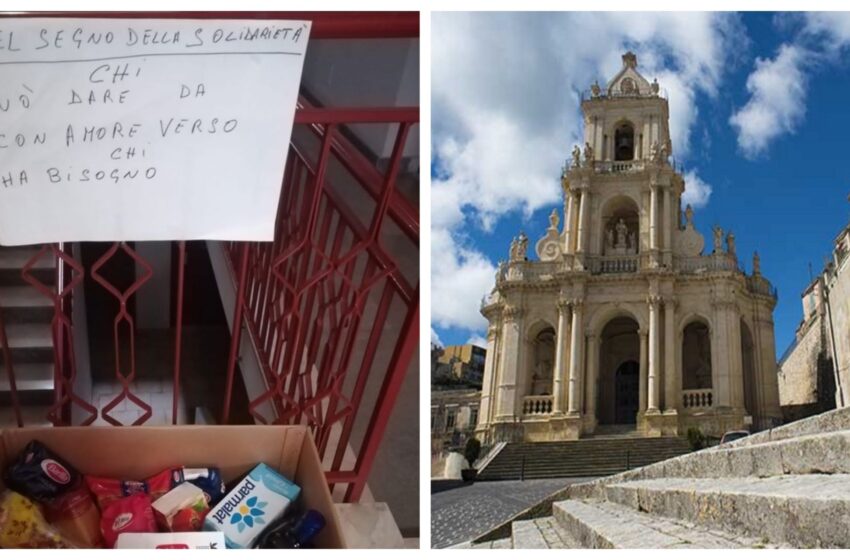 EL SEGNO DELLA SOLIDARIETÀ
CHI
UÒ DARE DA
CON AMORE VERSO
CHI
HA BISOGNO
parmalat